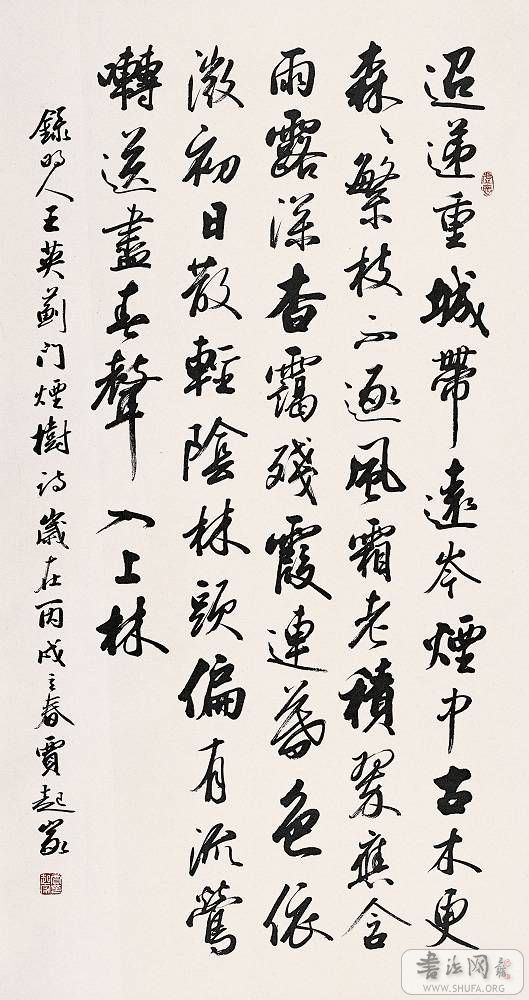 迢遞重城帶遠岑煙中古木更
森々繁枝不逐風霜老積翠應含
雨露深杳靄殘霞連暮色依
微初日散輕陰林頭偏有流鶯
囀送盡春聲入上林
録明人王英薊門煙樹诗歲在丙戌之春賈起家
书法网
WWW.SHUFA.ORG